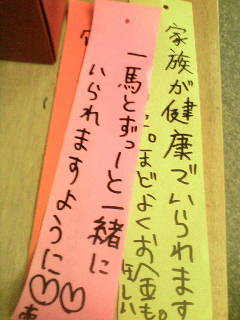 家族が健康でいられます
ほどよくお金も。
ほしい
一馬とずっーと一緒に
いられますように♡♡